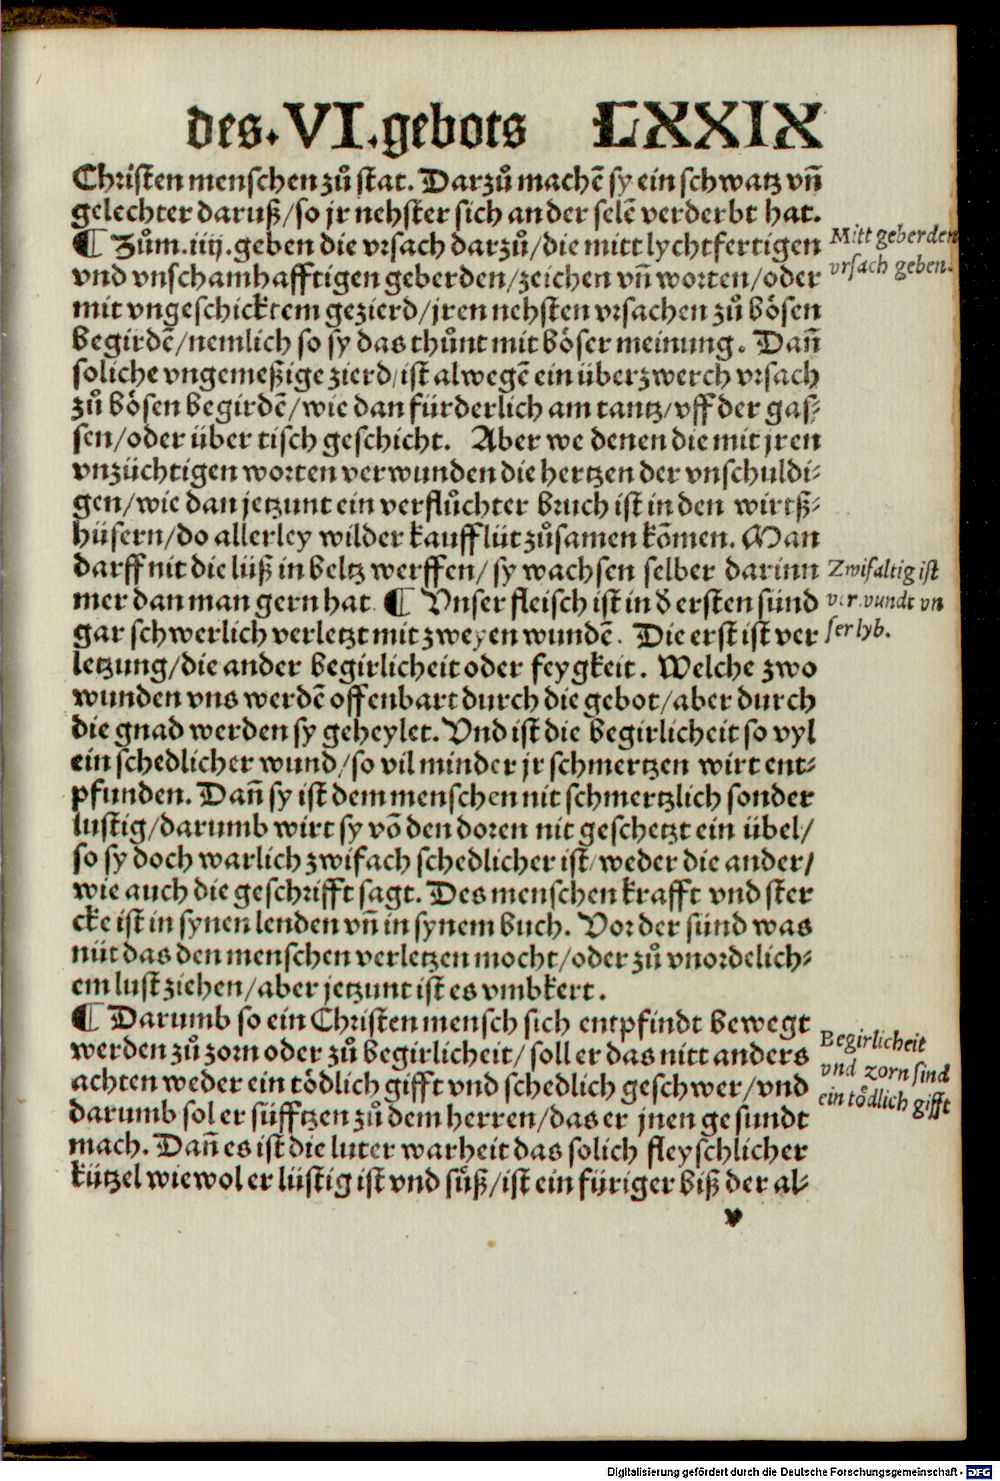 des. VI. gebots LXXIX
Christen menschen zuͦ stat. Darzuͦ machẽ sy ein schwatz vñ
gelechter daruß/so jr nehster sich an der selẽ verderbt hat.
¶ Zuͦm .iiij. geben die vrsach darzuͦ/die mitt lychtfertigen
vnd vnschamhafftigen geberden/zeichen vñ worten/oder
mit vngeschicktem gezierd/jren nehsten vrsachen zuͦ bösen
begirdẽ/nemlich so sy das thuͦnt mit böser meinung. Dañ
soliche vngemeßige zierd/ist alwegẽ ein überzwerch vrsach
zuͦ bösen begirdẽ/wie dan fürderlich am tantz/vff der gas⸗
sen/oder über tisch geschicht. Aber we denen die mit jren
vnzüchtigen worten verwunden die hertzen der vnschuldi⸗
gen/wie dan jetzunt ein verfluͦchter bruch ist in den wirtß⸗
hüsern/do allerley wilder kaufflüt zuͦsamen kõmen. Man
darff nit die lüß in beltz werffen/sy wachsen selber darinn
mer dan man gern hat. ¶ Vnser fleisch ist in d ersten sünd
gar schwerlich verletzt mit zweyen wundẽ. Die erst ist ver
letzung/die ander begirlicheit oder feygkeit. Welche zwo
wunden vns werdẽ offenbart durch die gebot/aber durch
die gnad werden sy geheylet. Vnd ist die begirlicheit so vyl
ein schedlicher wund/so vil minder jr schmertzen wirt ent⸗
pfunden. Dañ sy ist dem menschen nit schmertzlich sonder
lustig/darumb wirt sy võ den doren nit geschetzt ein übel/
so sy doch warlich zwifach schedlicher ist/weder die ander/
wie auch die geschrifft sagt. Des menschen krafft vnd ster
cke ist in synen lenden vñ in synem buch. Vor der sünd was
nüt das den menschen verletzen mocht/oder zuͦ vnordelich⸗
em lust ziehen/aber jetzunt ist es vmbkert.
¶ Darumb so ein Christen mensch sich entpfindt bewegt
werden zuͦ zorn oder zuͦ begirlicheit/soll er das nitt anders
achten weder ein tödlich gifft vnd schedlich geschwer/vnd
darumb sol er süfftzen zuͦ dem herren/das er jnen gesundt
mach. Dañ es ist die luter warheit das solich fleyschlicher
kützel wiewol er lüstig ist vnd suͤß/ist ein füriger biß der al⸗
v
Mitt geberden
vrsach geben.
Zwifaltig ist
verwundt vn
ser lyb.
Begirlicheit
vnd zorn sind
ein tödlich gifft
Digitalisierung gefördert durch die Deutsche Forschungsgemeinschaft - DFG